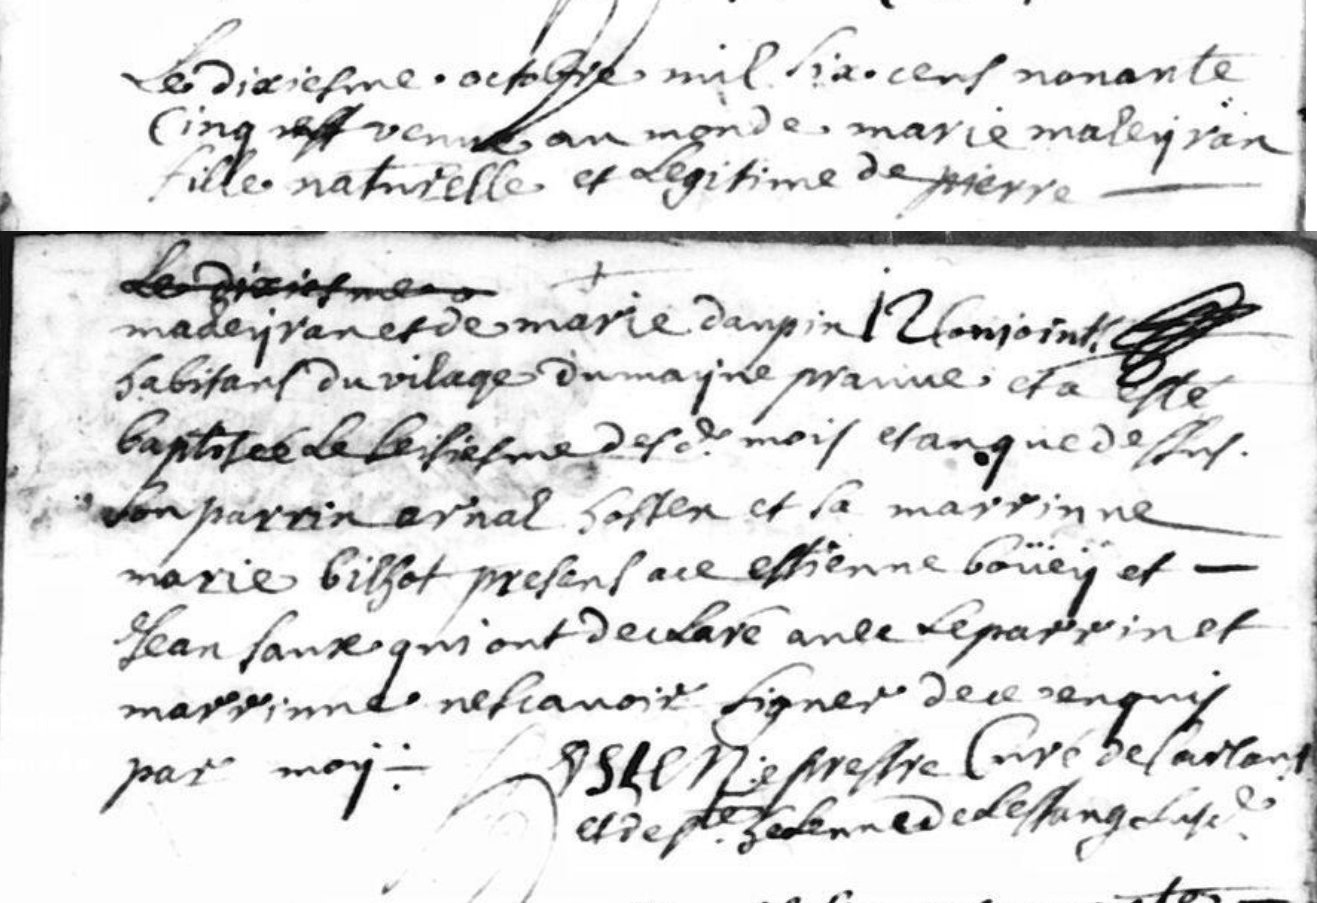 Le dixiesme octobre mil six cens nonante
cinq est venue au monde marie maleyran
fille naturelle et Legitime de pierre
Le dixiesme
maleyran et de marie daupin 12 Conjoints
habitans du vilage du mayne pranue et a esté
baptisée Le sesiesme desd. mois et an que dessus.
Son parrin arnal hosten et sa marrinne
marie bilhot presens a ce estienne boüeÿ et
Jean saux qui ont declaré avec Le parrin et
marrinne ne scavoir signer de ce enquis
par moÿ
prestre Curé de
et de ste helenne de Lestang